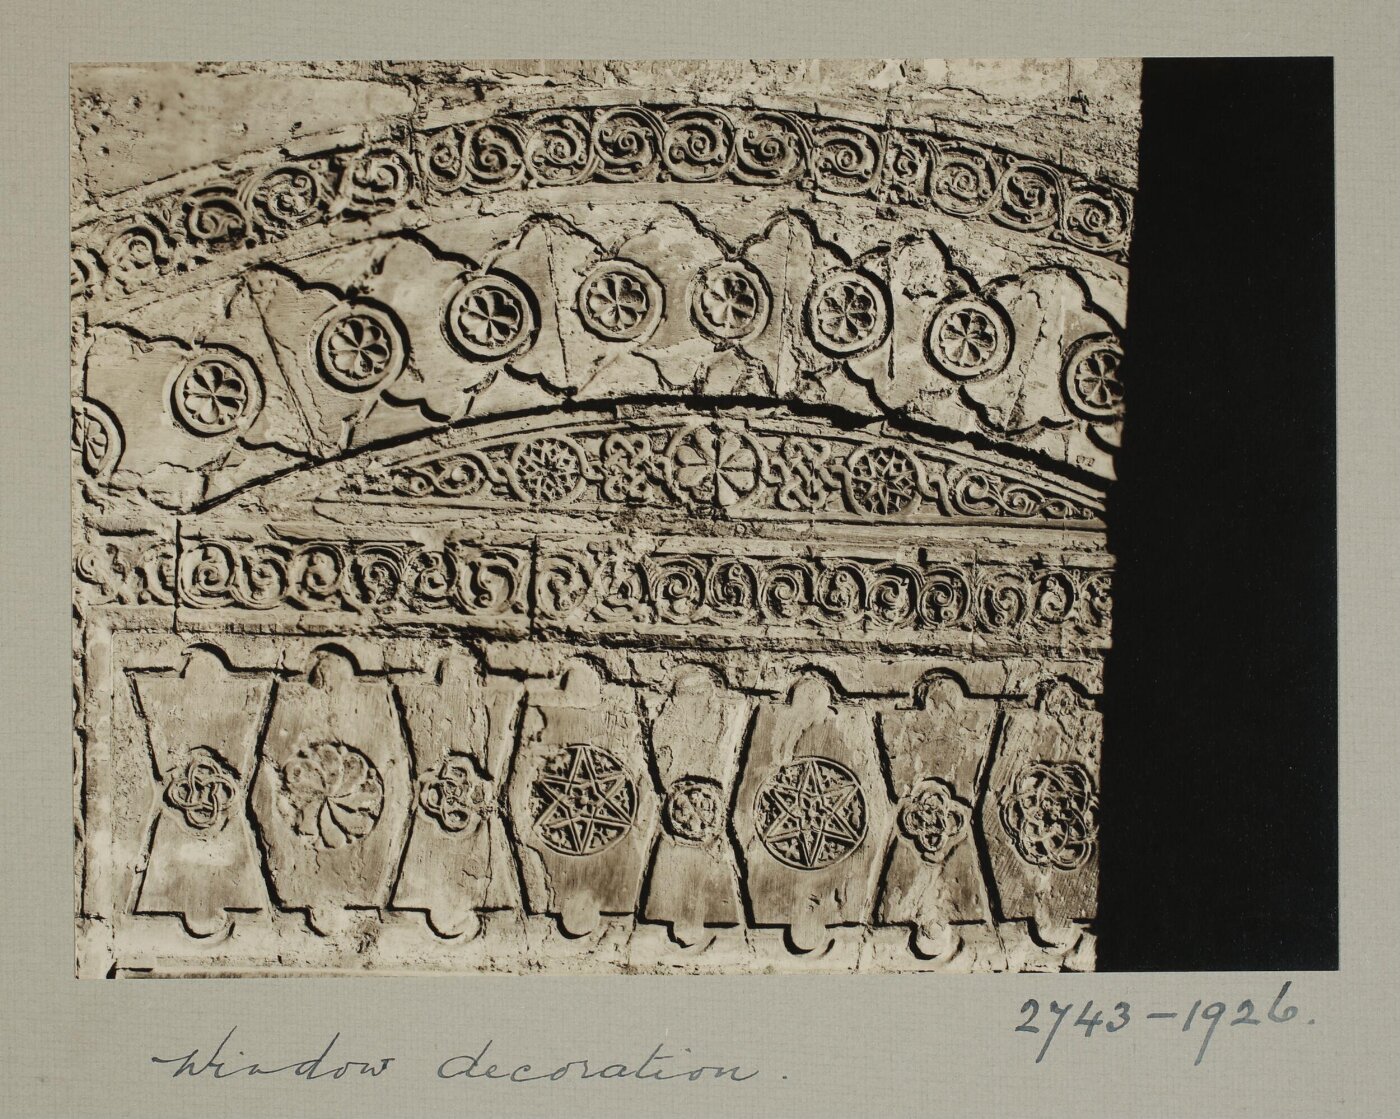 2743-1926.
Window decoration.